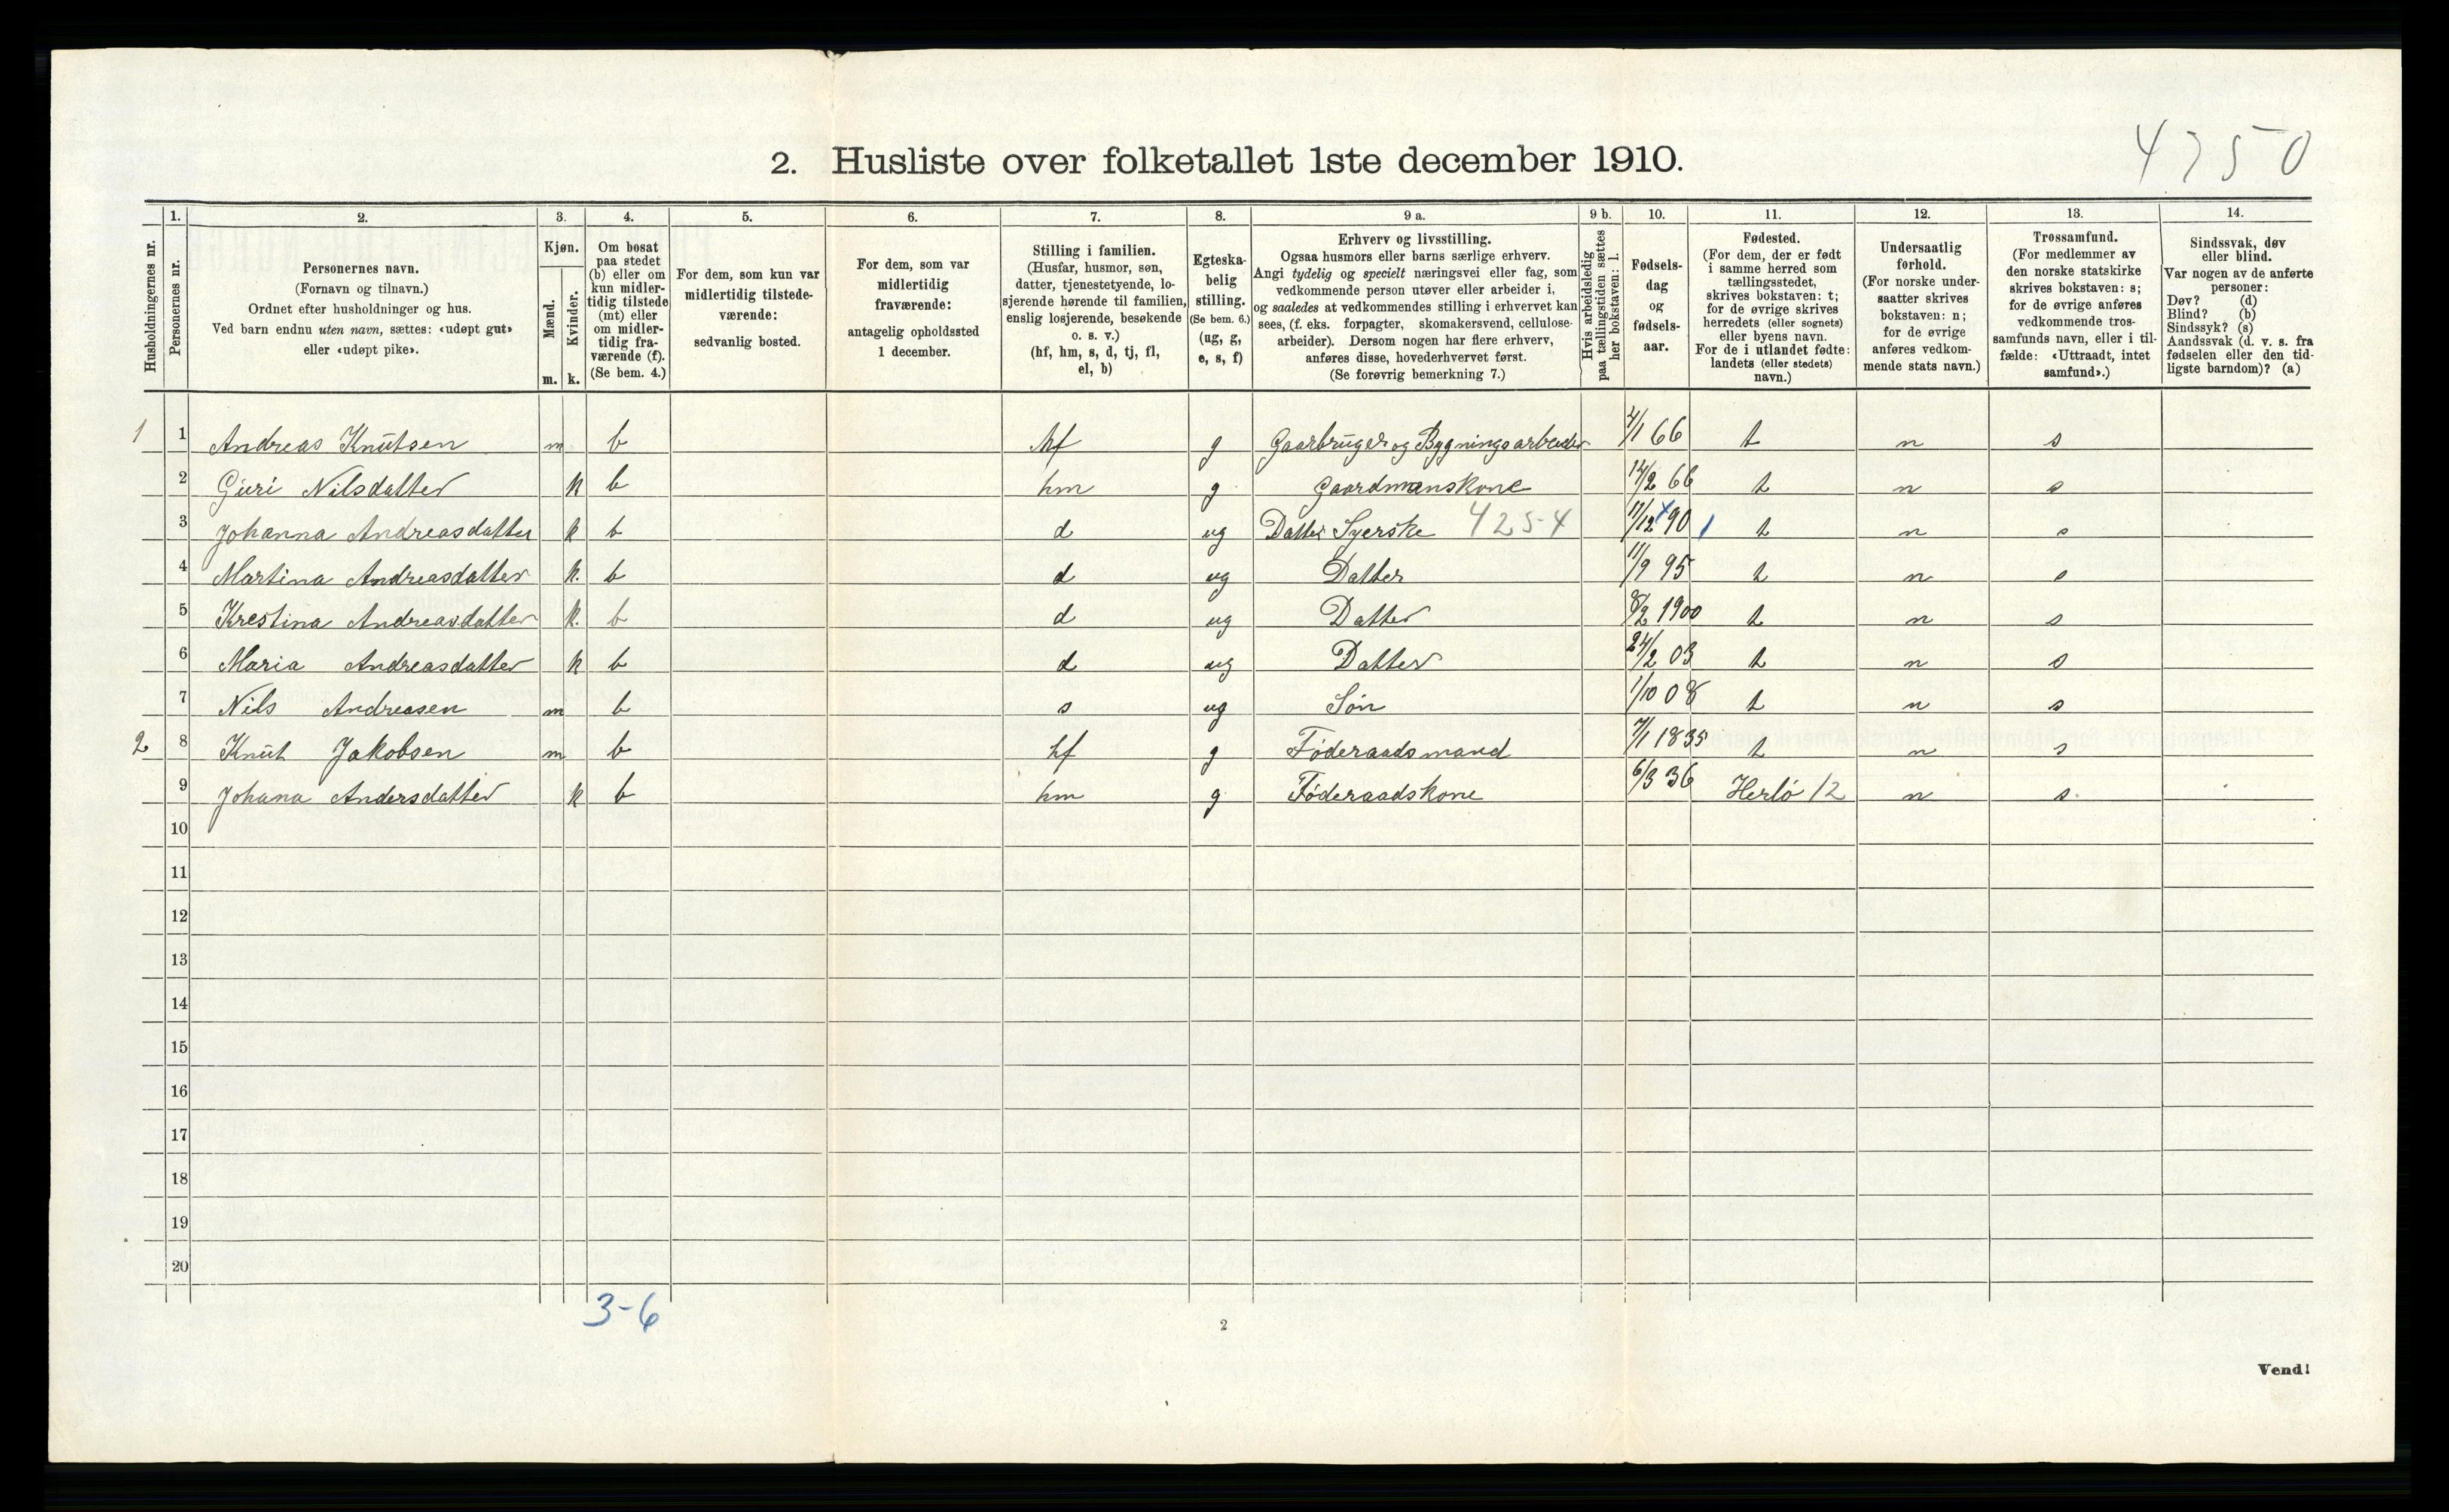 4750
2. Husliste over folketallet 1ste december 1910.
Husholdningernes nr.
1.
Personernes nr.
2.
Personernes navn.
(Fornavn og tilnavn.)
Ordnet efter husholdninger og hus.
Ved barn endnu uten navn, sættes: «udøpt gut»
eller «udøpt pike».
3.
Kjøn.
Mænd.
Kvinder.
m. k.
4.
Om bosat
paa stedet
(b) eller om
kun midler-
tidig tilstede
(mt) eller
om midler-
tidig fra-
værende (f).
(Se bem. 4.)
5.
For dem, som kun var
midlertidig tilstede-
værende:
sedvanlig bosted.
6.
For dem, som var
midlertidig
fraværende:
antagelig opholdssted
1 december.
7.
Stilling i familien.
(Husfar, husmor, søn,
datter, tjenestetyende, lo-
sjerende hørende til familien,
enslig losjerende, besøkende
o. s. v.)
(hf, hm, s, d, tj, fl,
el, b)
8.
Egteska-
belig
stilling.
(Se bem. 6.)
(ug, g,
e, s, f)
9 a.
Erhverv og livsstilling.
Ogsaa husmors eller barns særlige erhverv.
Angi tydelig og specielt næringsvei eller fag, som
vedkommende person utøver eller arbeider i,
og saaledes at vedkommendes stilling i erhvervet kan
sees, (f. eks. forpagter, skomakersvend, cellulose-
arbeider). Dersom nogen har flere erhverv,
anføres disse, hovederhvervet først.
(Se forøvrig bemerkning 7.)
9 b.
Hvis arbeidsledig
paa tællingstiden sættes
her bokstaven: l.
10.
Fødsels-
dag
og
fødsels-
aar.
11.
Fødested.
(For dem, der er født
i samme herred som
tællingsstedet,
skrives bokstaven: t;
for de øvrige skrives
herredets (eller sognets)
eller byens navn.
For de i utlandet fødte:
landets (eller stedets)
navn.)
12.
Undersaatlig
forhold.
(For norske under-
saatter skrives
bokstaven: n;
for de øvrige
anføres vedkom-
mende stats navn.)
13.
Trossamfund.
(For medlemmer av
den norske statskirke
skrives bokstaven: s;
for de øvrige anføres
vedkommende tros-
samfunds navn, eller i til-
fælde: «Uttraadt, intet
samfund».)
14.
Sindssvak, døv
eller blind.
Var nogen av de anførte
personer:
Døv? (d)
Blind? (b)
Sindssyk? (s)
Aandssvak (d. v. s. fra
fødselen eller den tid-
ligste barndom)? (a)
1 1 Andreas Knutsen m b hf g Gaarbruger og Bygningsarbeider 4/1 66 t n s
2 Guri Nilsdatter k b hm g Gaardmanskone 14/2 66 t n s
3 Johanna Andreasdatter k b d ug Datter Syerske 425-4 11/12 90 1 t n s
4 Martina Andreasdatter k. b d ug Datter 11/9 95 t n s
5 Krestina Andreasdatter k. b d ug Datter 8/2 1900 t n s
6 Maria Andreasdatter k b d ug Datter 24/2 03 t n s
7 Nils Andreasen m b s ug Søn 1/10 08 t n s
2 8 Knut Jakobsen m b hf g Föderaadsmand 7/1 1835 t n s
9 Johana Andersdatter k b hm g Föderaadskone 6/3 36 Herlö 12 n s.
10
11
12
13
14
15
16
17
18
19
20
3-6
2
Vend!